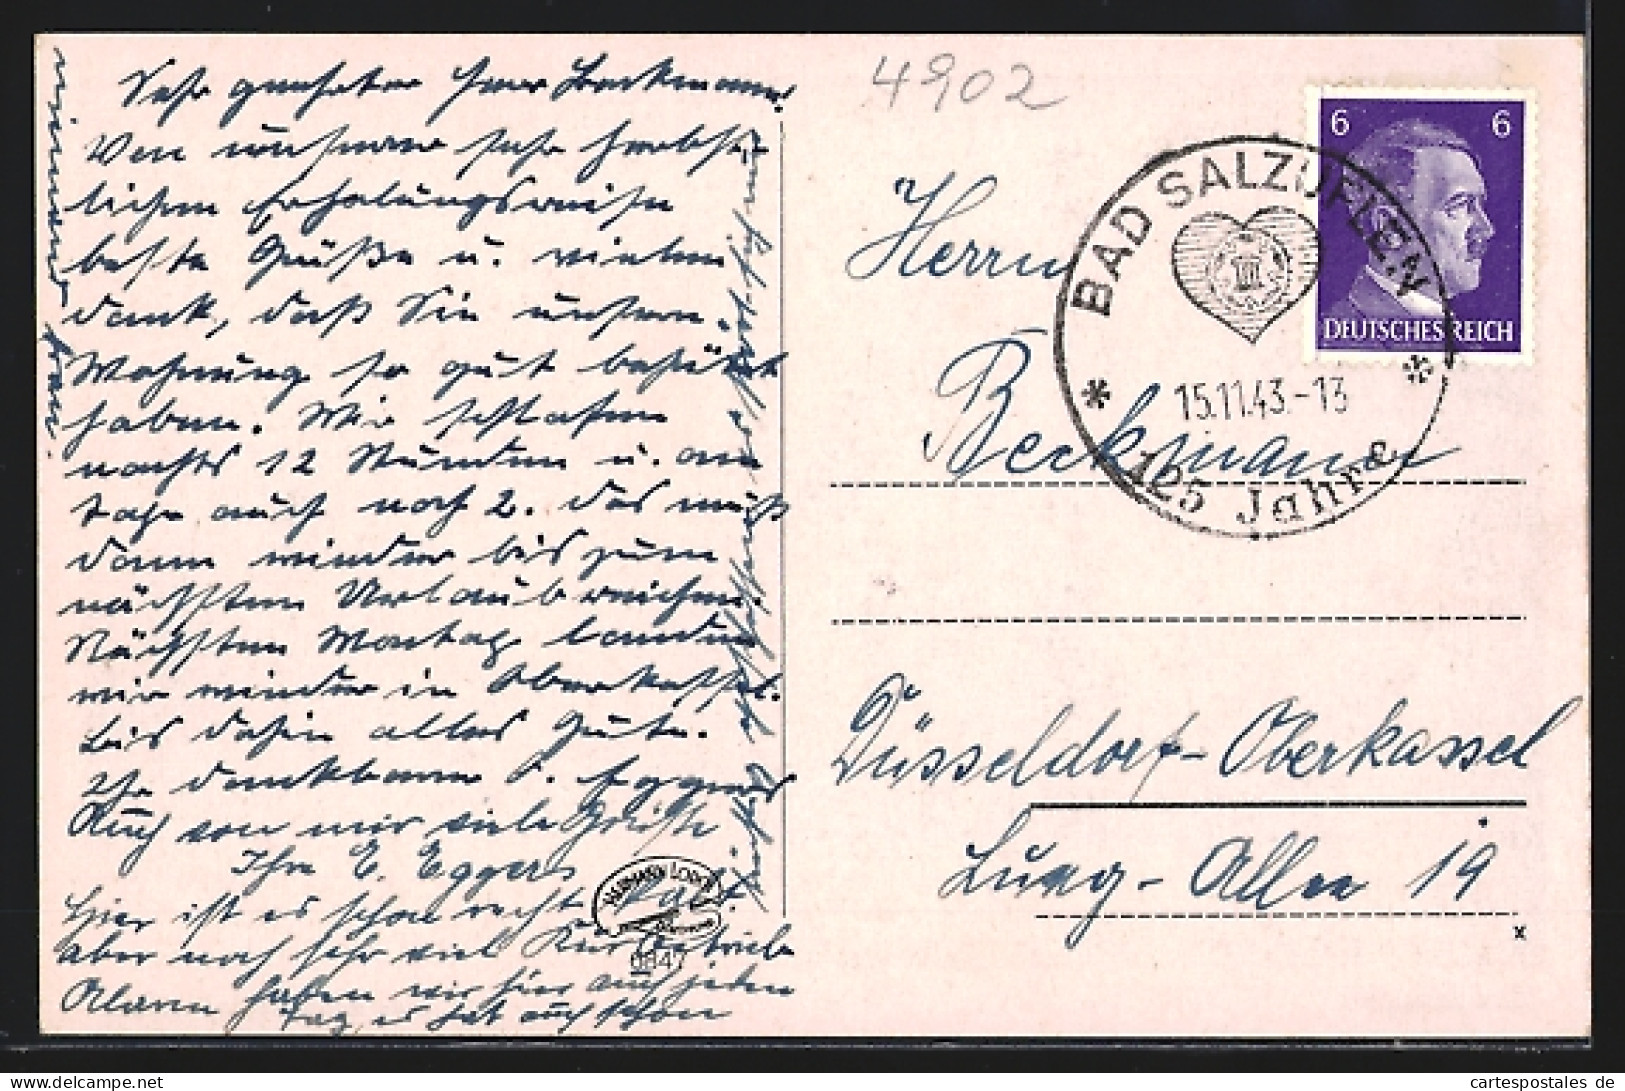 Sehr geehrter Herr Beckmann.
Von unserer sehr herbst-
lichen Erholungsreise
beste Grüße u. vielen
Dank, daß Sie unsere
Wohnung so gut behütet
haben. Wir schlafen
nachts 12 Stunden u. am
Tage auch noch 2. Das muß
dann wieder bis zum
nächsten Urlaub reichen.
Nächsten Montag landen
wir wieder in Oberkassel.
Bis dahin alles Gute.
Ihr dankbarer Eggers
Auch von mir viele Grüße
Ihre E. Eggers
Hier ist es schon recht kalt.
aber noch sehr viel Kurbetrieb
Alarm haben wir hier auch jeden
Tag, es hat auch schon
4902
6 6
DEUTSCHES REICH
BAD SALZUFLEN
15.11.43.-13
125 Jahre
Herrn
Beckmann
Düsseldorf-Oberkassel
Lueg-Allee 19
x
HERMANN LORCH
0847
cartespostales de